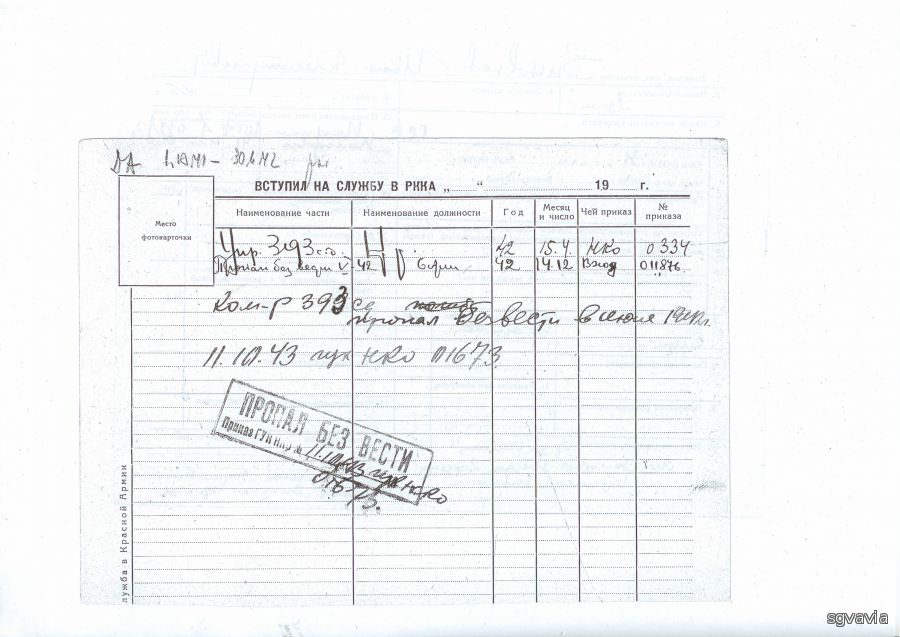 ВСТУПИЛ НА СЛУЖБУ В РККА „ “ 19 г.
Место фотокарточки
Наименование части Наименование должности Год Месяц и число Чей приказ № приказа
Упр. 393 сд. 42 15.4. НКО 0334
Пропал без вести V 42 42 14.12 Вход 011876
Ком-р 393 сд
пропал без вести в июне 1942г.
11.10.43 гук НКО 01673
ПРОПАЛ БЕЗ ВЕСТИ
Приказ ГУК НКО №
11.10.43 гук НКО
служба в Красной Армии
sgvavia